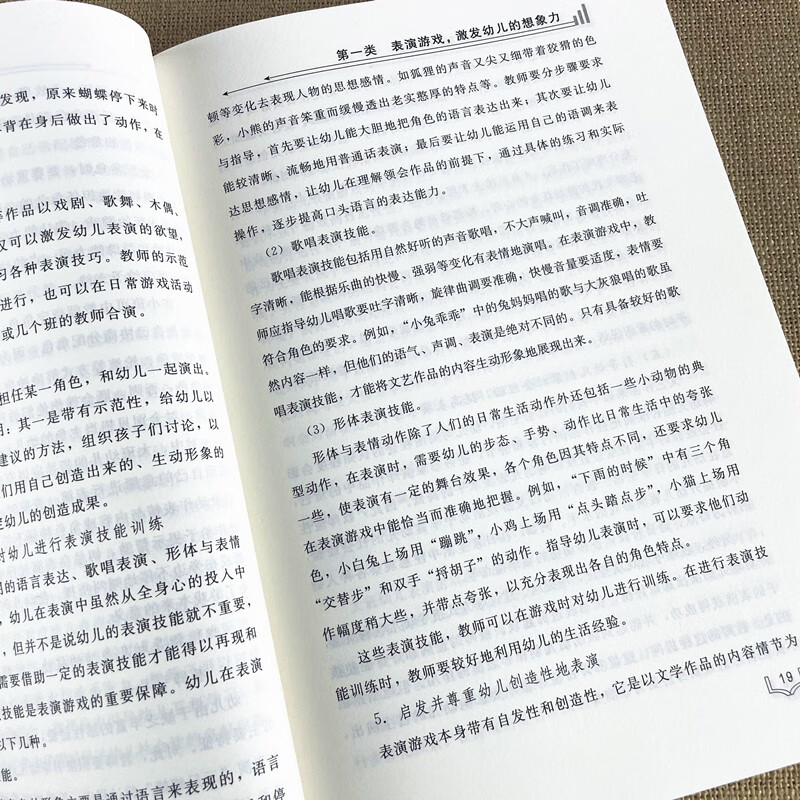 发现，原来蝴蝶停下来时
背在身后做出了动作，在
作品以戏剧、歌舞、木偶、
可以激发幼儿表演的欲望，
习各种表演技巧。教师的示范
进行，也可以在日常游戏活动
或几个班的教师合演。
担任某一角色，和幼儿一起演出。
：其一是带有示范性，给幼儿以
建议的方法，组织孩子们讨论，以
们用自己创造出来的、生动形象的
幼儿的创造成果。
对幼儿进行表演技能训练
的语言表达、歌唱表演、形体与表情
，幼儿在表演中虽然从全身心的投入中
，但并不是说幼儿的表演技能就不重要，
需要借助一定的表演技能才能得以再现和
技能是表演游戏的重要保障。幼儿在表演
以下几种。
能。
形象主要是通过语言来表现的，语言
和停
第一类 表演游戏，激发幼儿的想象力
顿等变化去表现人物的思想感情。如狐狸的声音又尖又细带着狡猾的色
彩，小熊的声音笨重而缓慢透出老实憨厚的特点等。教师要分步骤要求
与指导，首先要让幼儿能大胆地把角色的语言表达出来；其次要让幼儿
能较清晰、流畅地用普通话表演；最后要让幼儿能运用自己的语调来表
达思想感情，让幼儿在理解领会作品的前提下，通过具体的练习和实际
操作，逐步提高口头语言的表达能力。
（2）歌唱表演技能。
歌唱表演技能包括用自然好听的声音歌唱，不大声喊叫，音调准确，吐
字清晰，能根据乐曲的快慢、强弱等变化有表情地演唱。在表演游戏中，教
师应指导幼儿唱歌要吐字清晰，旋律曲调要准确，快慢音量要适度，表情要
符合角色的要求。例如，“小兔乖乖”中的兔妈妈唱的歌与大灰狼唱的歌虽
然内容一样，但他们的语气、声调、表演是绝对不同的。只有具备较好的歌
唱表演技能，才能将文艺作品的内容生动形象地展现出来。
（3）形体表演技能。
形体与表情动作除了人们的日常生活动作外还包括一些小动物的典
型动作，在表演时，需要幼儿的步态、手势、动作比日常生活中的夸张
一些，使表演有一定的舞台效果，各个角色因其特点不同，还要求幼儿
在表演游戏中能恰当而准确地把握。例如，“下雨的时候”中有三个角
色，小白兔上场用“蹦跳”，小鸡上场用“点头踏点步”，小猫上场用
“交替步”和双手“捋胡子”的动作。指导幼儿表演时，可以要求他们动
作幅度稍大些，并带点夸张，以充分表现出各自的角色特点。
这些表演技能，教师可以在游戏时对幼儿进行训练。在进行表演技
能训练时，教师要较好地利用幼儿的生活经验。
5．启发并尊重幼儿创造性地表演
表演游戏本身带有自发性和创造性，它是以文学作品的内容情节为
19